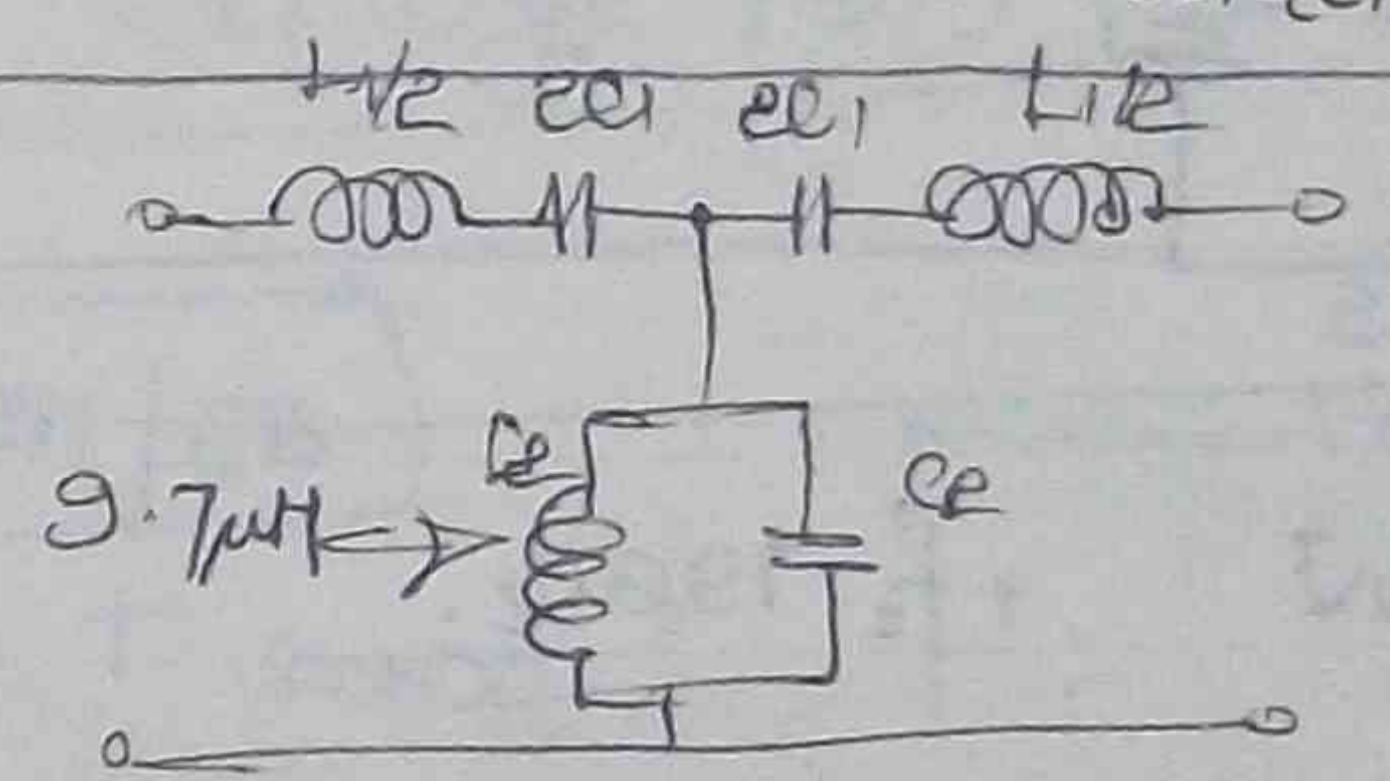 L1/2 2C1 2C1 L1/2
L2
C2
9.7μH